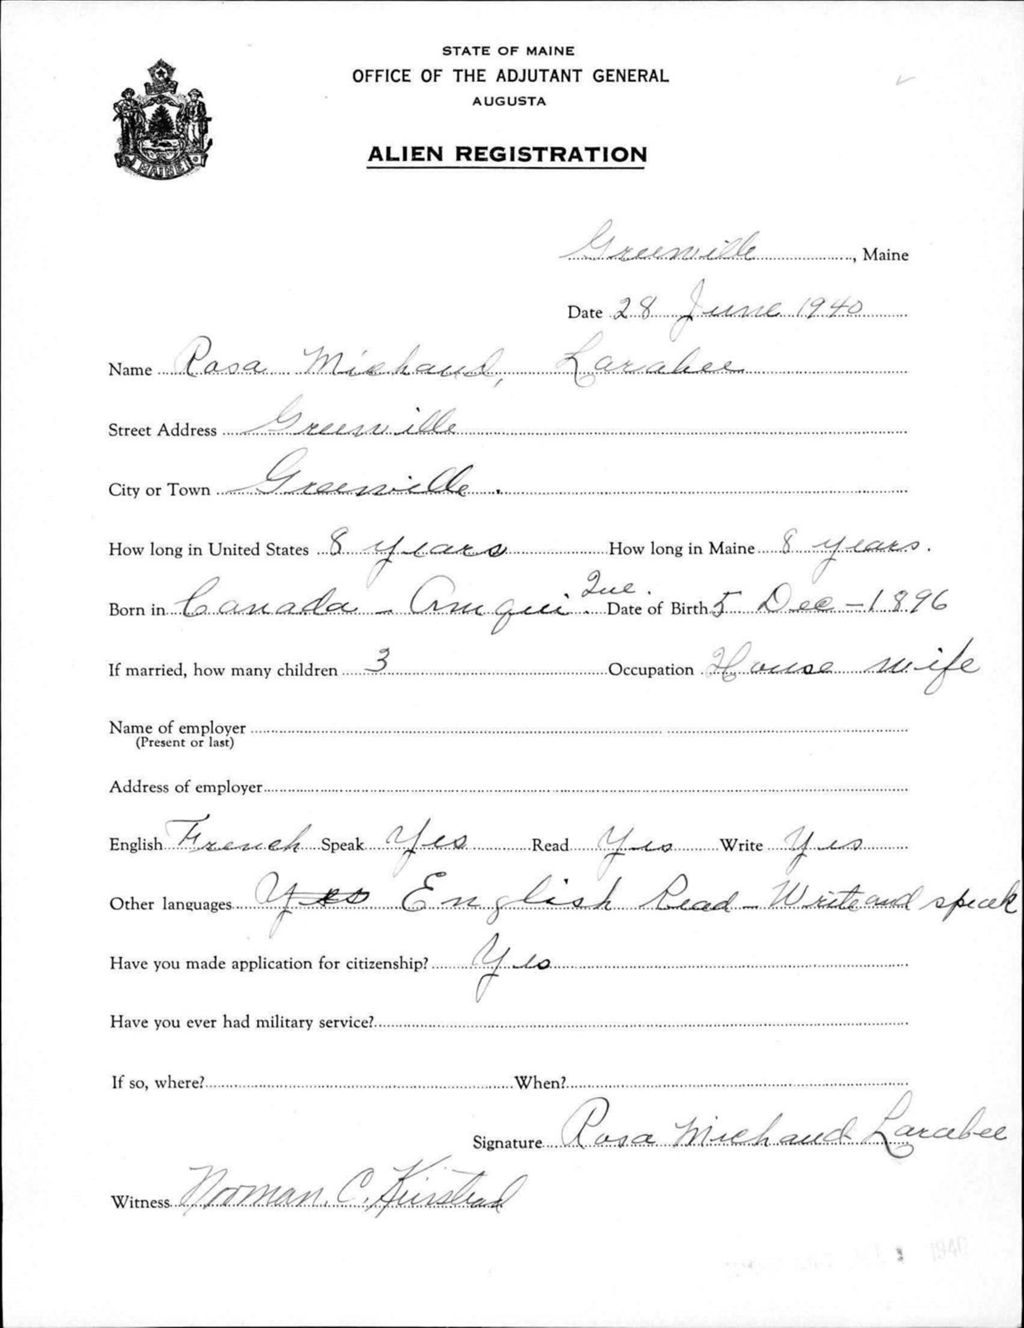 STATE OF MAINE
OFFICE OF THE ADJUTANT GENERAL
AUGUSTA
ALIEN REGISTRATION
MAINE
Greenville, Maine
Date 28 June 1940
Name Rosa Michaud, Larabee
Street Address Greenville
City or Town Greenville.
How long in United States 8 years How long in Maine 8 years.
Born in Canada - Amqui Que. Date of Birth 5 Dec - 1896
If married, how many children 3 Occupation House wife
Name of employer
(Present or last)
Address of employer
English French Speak Yes Read Yes Write Yes
Other languages Yes English Read - Write and speak
Have you made application for citizenship? Yes
Have you ever had military service?
If so, where? When?
Signature Rosa Michaud Larabee
Witness Norman. C. Kinstead
1940